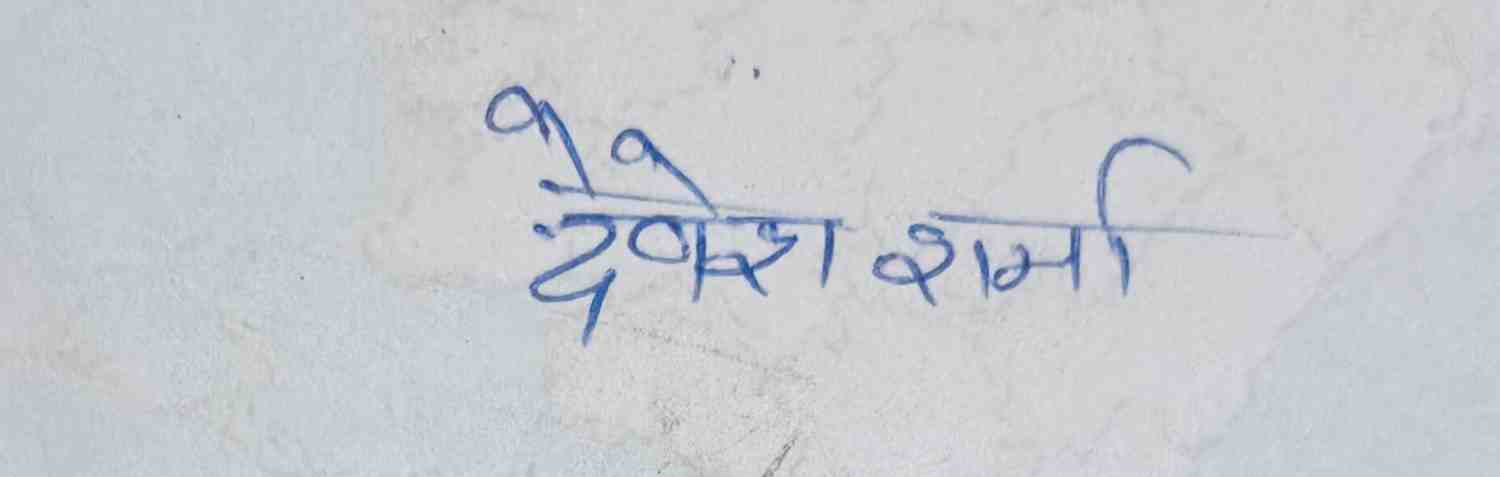 देवेश शर्मा